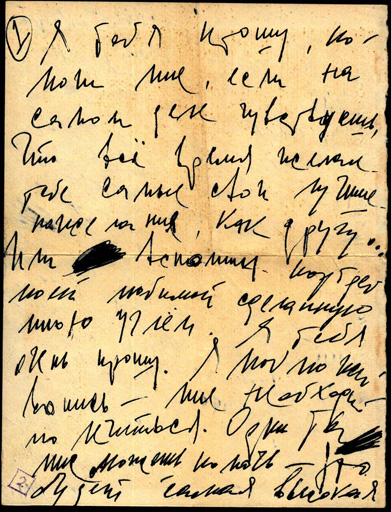 ① Я тебя прошу, по-
моги мне, если на
самом деле чувствуешь,
Что всё время желаю
тебе самые свои лучшие
пожелания, как другу...
Или вспомни портрет
моей любимой сделанную
мною углём. Я тебя
очень прошу. Я
мне необходи-
мо лечиться. Один ты
мне можешь помочь — это
будет самая высокая
2